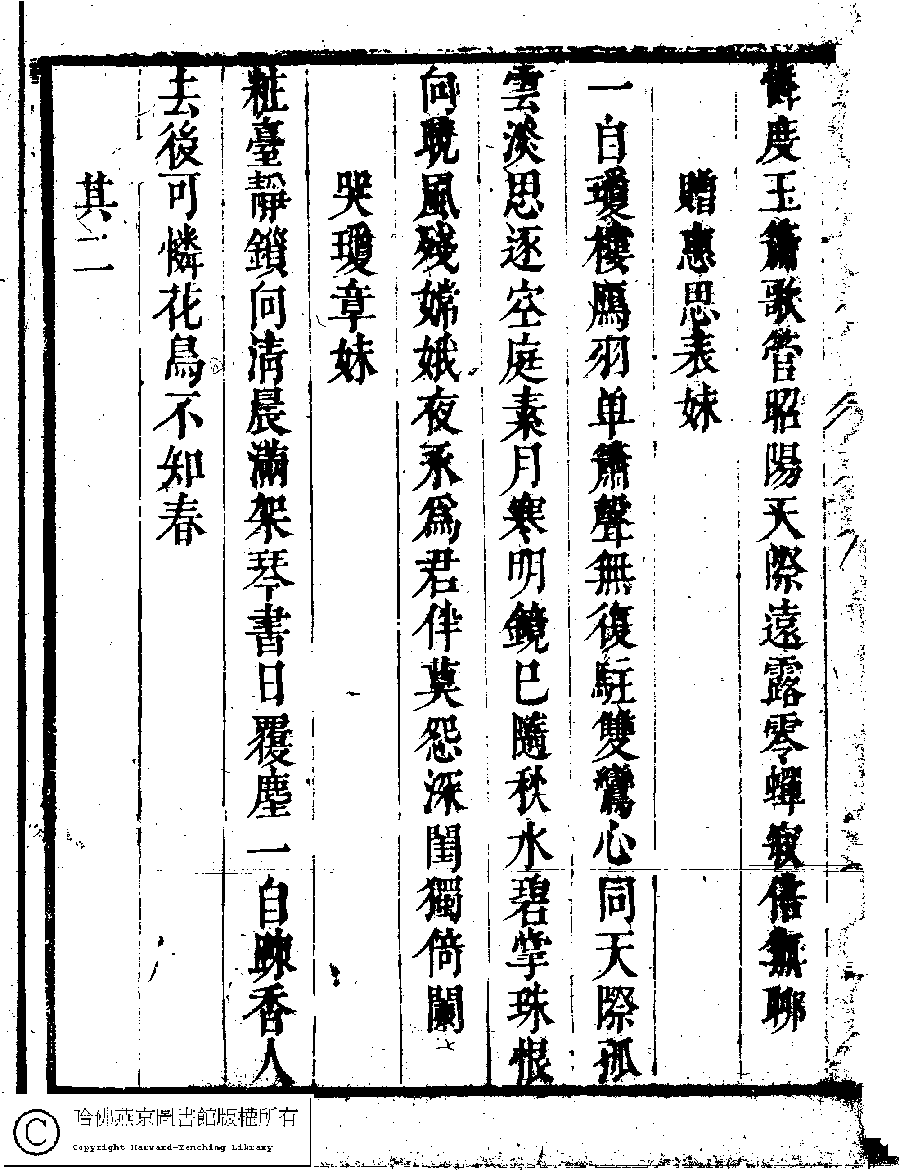 度玉簫歌管昭陽天際遠露零蟬寂倍無聊
贈蕙思表妹
一自瓊樓鴈羽单簫聲無復駐雙鸞心同天際孤
雲淡思逐空庭素月寒明鏡已隨秋水碧掌珠恨
向曉風殘嫦娥夜永為君伴莫怨深閨獨倚闌
哭瓊章妹
粧臺靜鎖向清晨滿架琴書日覆塵一自踈香人
去後可憐花鳥不知春
其二
哈佛燕京圖書館版權所有
Copyright Harvard-Yenching Library